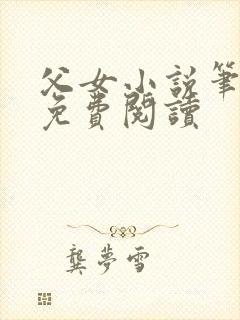 父女小説筆
免費閱讀
龔夢雪